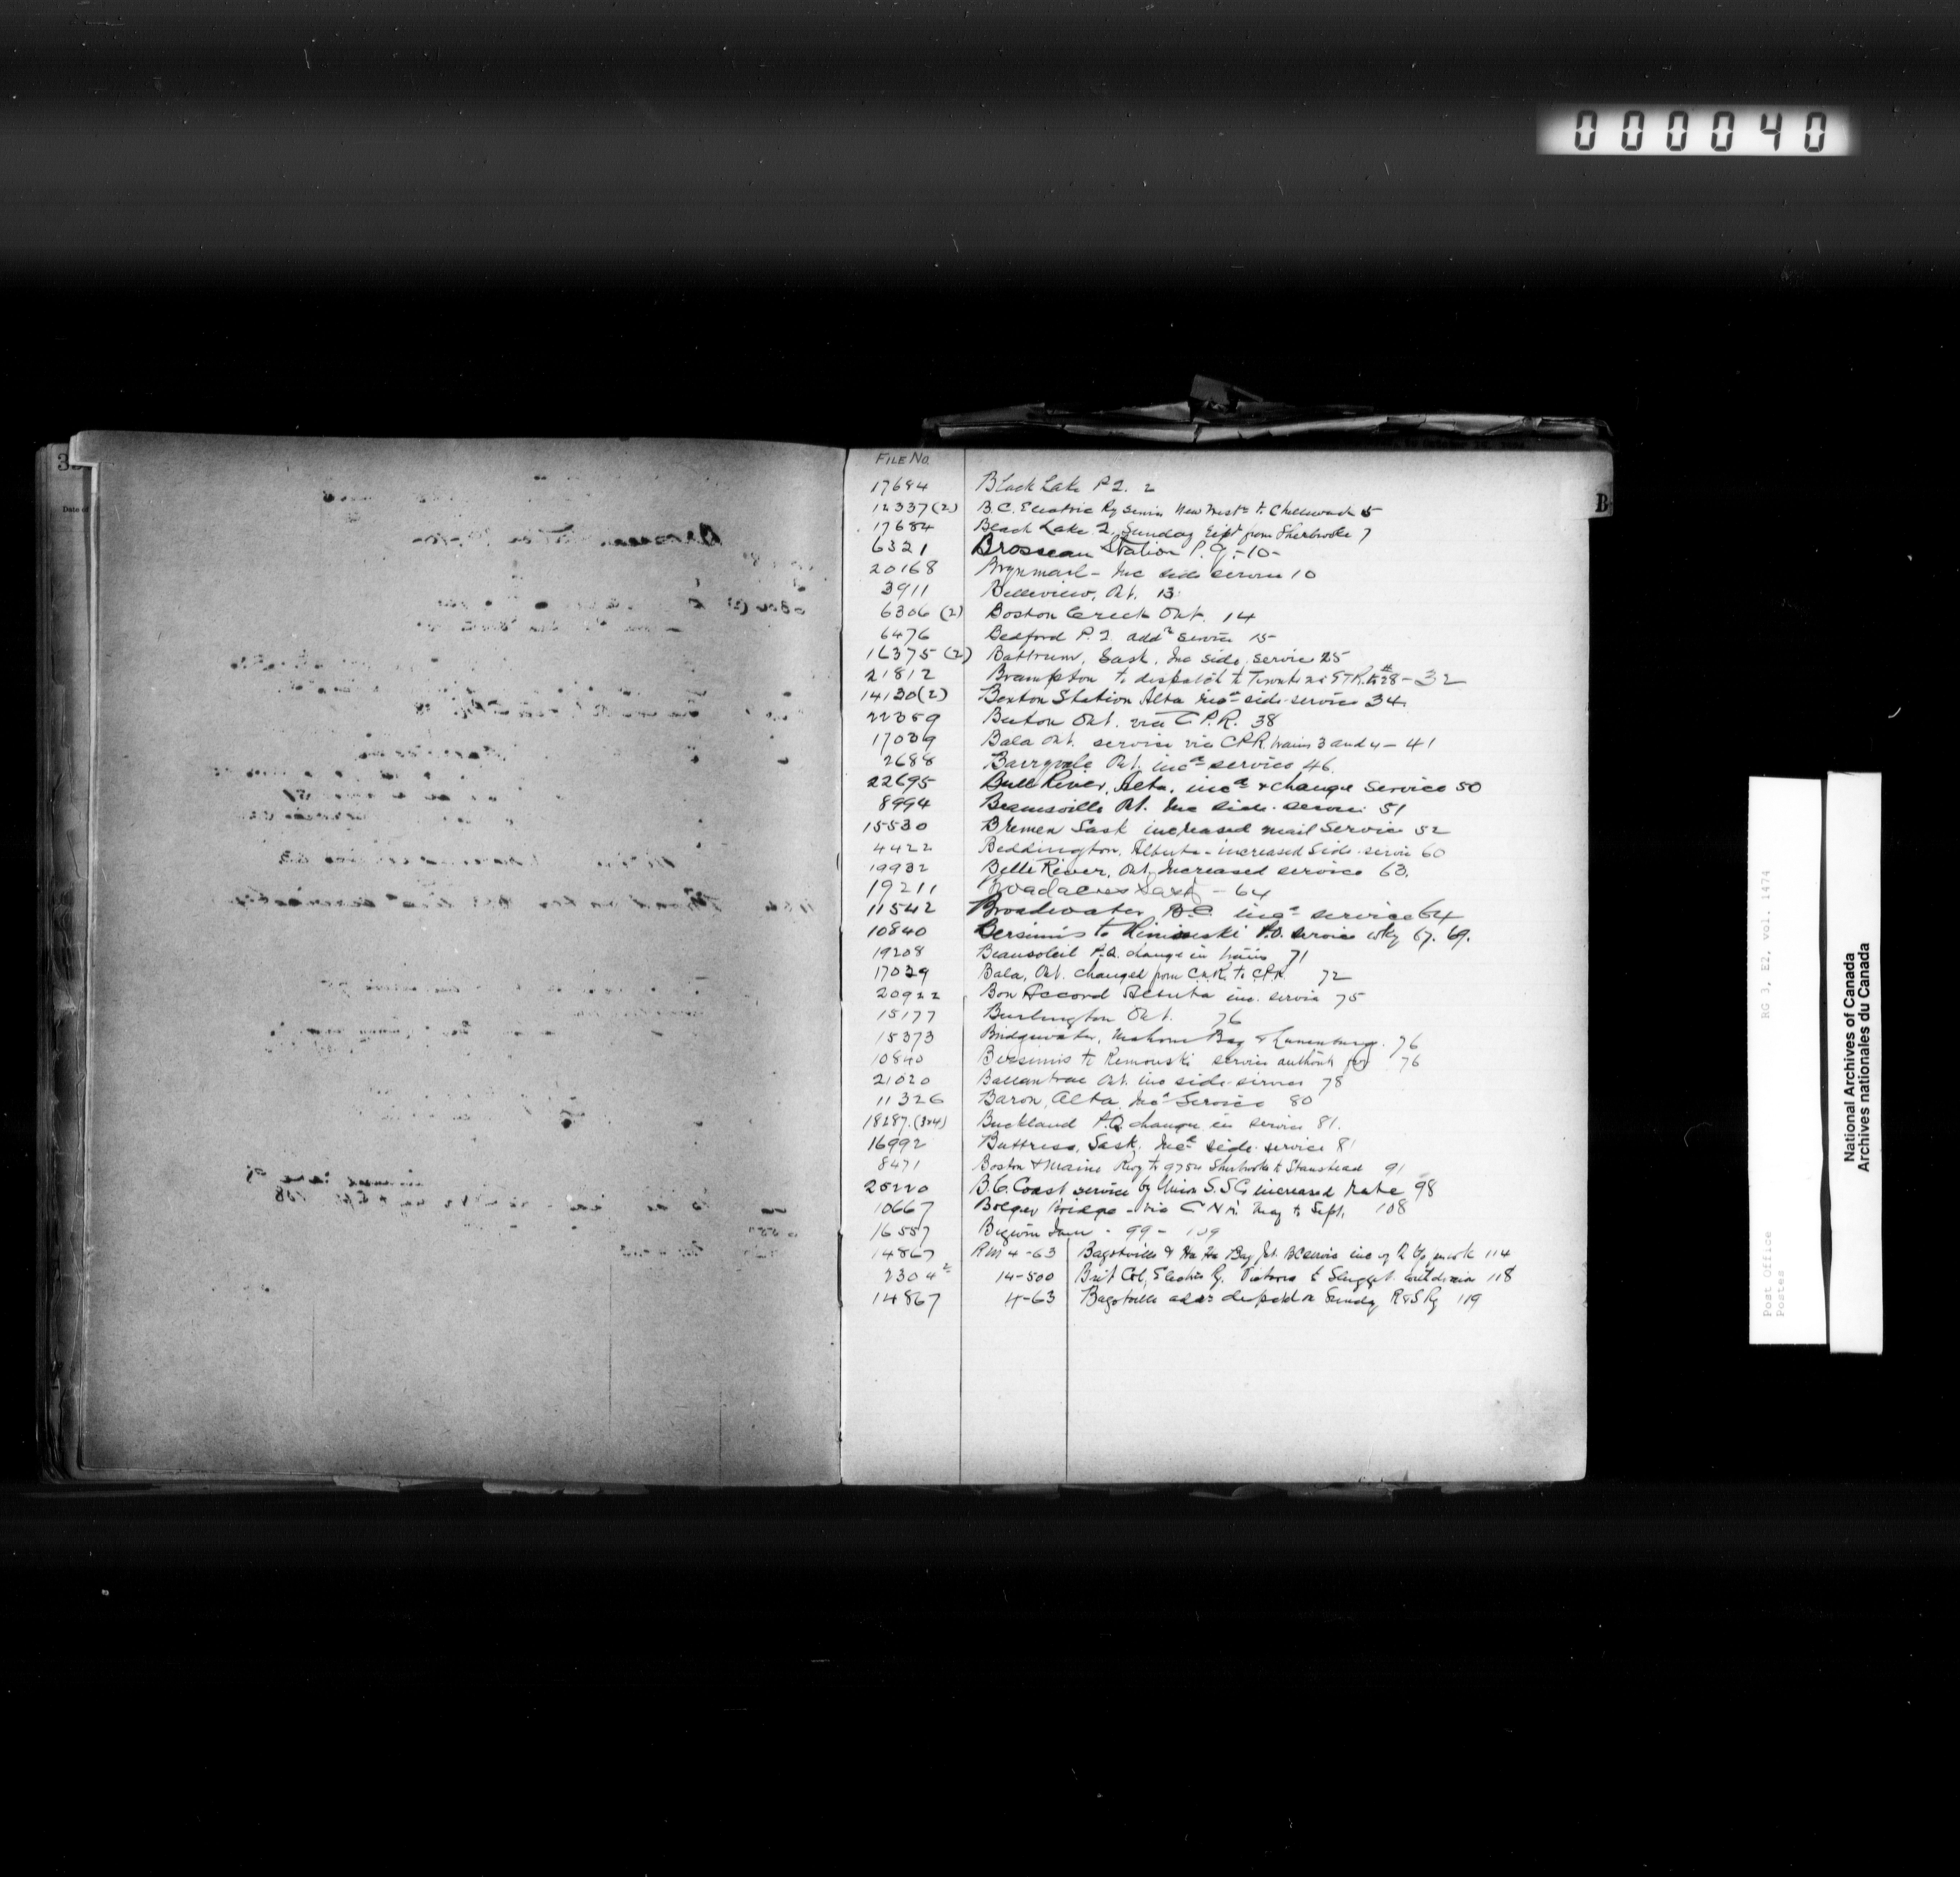 000040
FILE No.
B
17684 Black Lake P2. 2
12337(2) B.C. Electric Ry service New Westr to Chilliwack 5
17684 Black Lake 2, Sunday from Sherbrooke 7
6321 Brosseau Station P.Q. -10-
20168 Brynmarl - Inc side service 10
3911 Belleview, Ont. 13
6306 (2) Boston Creek Ont. 14
6476 Bedford P.Q. addl service 15
16375 (2) Battrum, Sask. Inc side service 25
21812 Brampton to despatch to Toronto G.T.R. #28 - 32
14130(2) Benton Station Alta incd side service 34
22359 Beeton Ont. via C.P.R. 38
17039 Bala Ont. service via CPR trains 3 and 4 - 41
2688 Barryvale Ont. incd service 46.
22695 Bull River, Alta. incd & change Service 50
8994 Beamsville Ont. Inc side service 51
15530 Bremen Sask increased mail Service 52
4422 Beddington, Alberta - increased Side service 60
19932 Belle River, Ont, Increased service 63.
19211 Broadacres Sask - 64
11542 Broadwater B.C. incd service 64
10840 Bersimis to Rimouski P.Q. service wkg 67. 69.
19208 Beausoleil P.Q. change in trains 71
17039 Bala, Ont. changed from C.N.R. to C.P.R. 72
20922 Bon Accord Alberta inc. service 75
15177 Burlington Ont. 76
15373 Bridgewater, Mahone Bay & Lunenburg. 76
10840 Bersimis to Rimouski service authority for 76
21020 Ballantrae Ont. inc side service 78
11326 Baron, Alta. Incd Service 80
18287.(3&4) Buckland P.Q. change in service 81.
16992 Buttress, Sask. Incd side service 81
8471 Boston & Maine Rwy Tr 9754 Sherbrooke to Stanstead 91
25220 B.C. Coast service by Union S.S Co increased rate 98
10667 Bolger Bridge - via C N R. May to Sept. 108
16557 Bigwin Inn - 99 - 109
14867 RM 4-63 Bagotville & Ha Ha Bay Jct. service inc 114
2304 2 14-500 Brit Col. Electric Ry. Victoria to Sluggett 118
14867 4-63 Bagotville Sunday R&S Ry 119
RG 3, E2, vol. 1474
Post Office
Postes
National Archives of Canada
Archives nationales du Canada